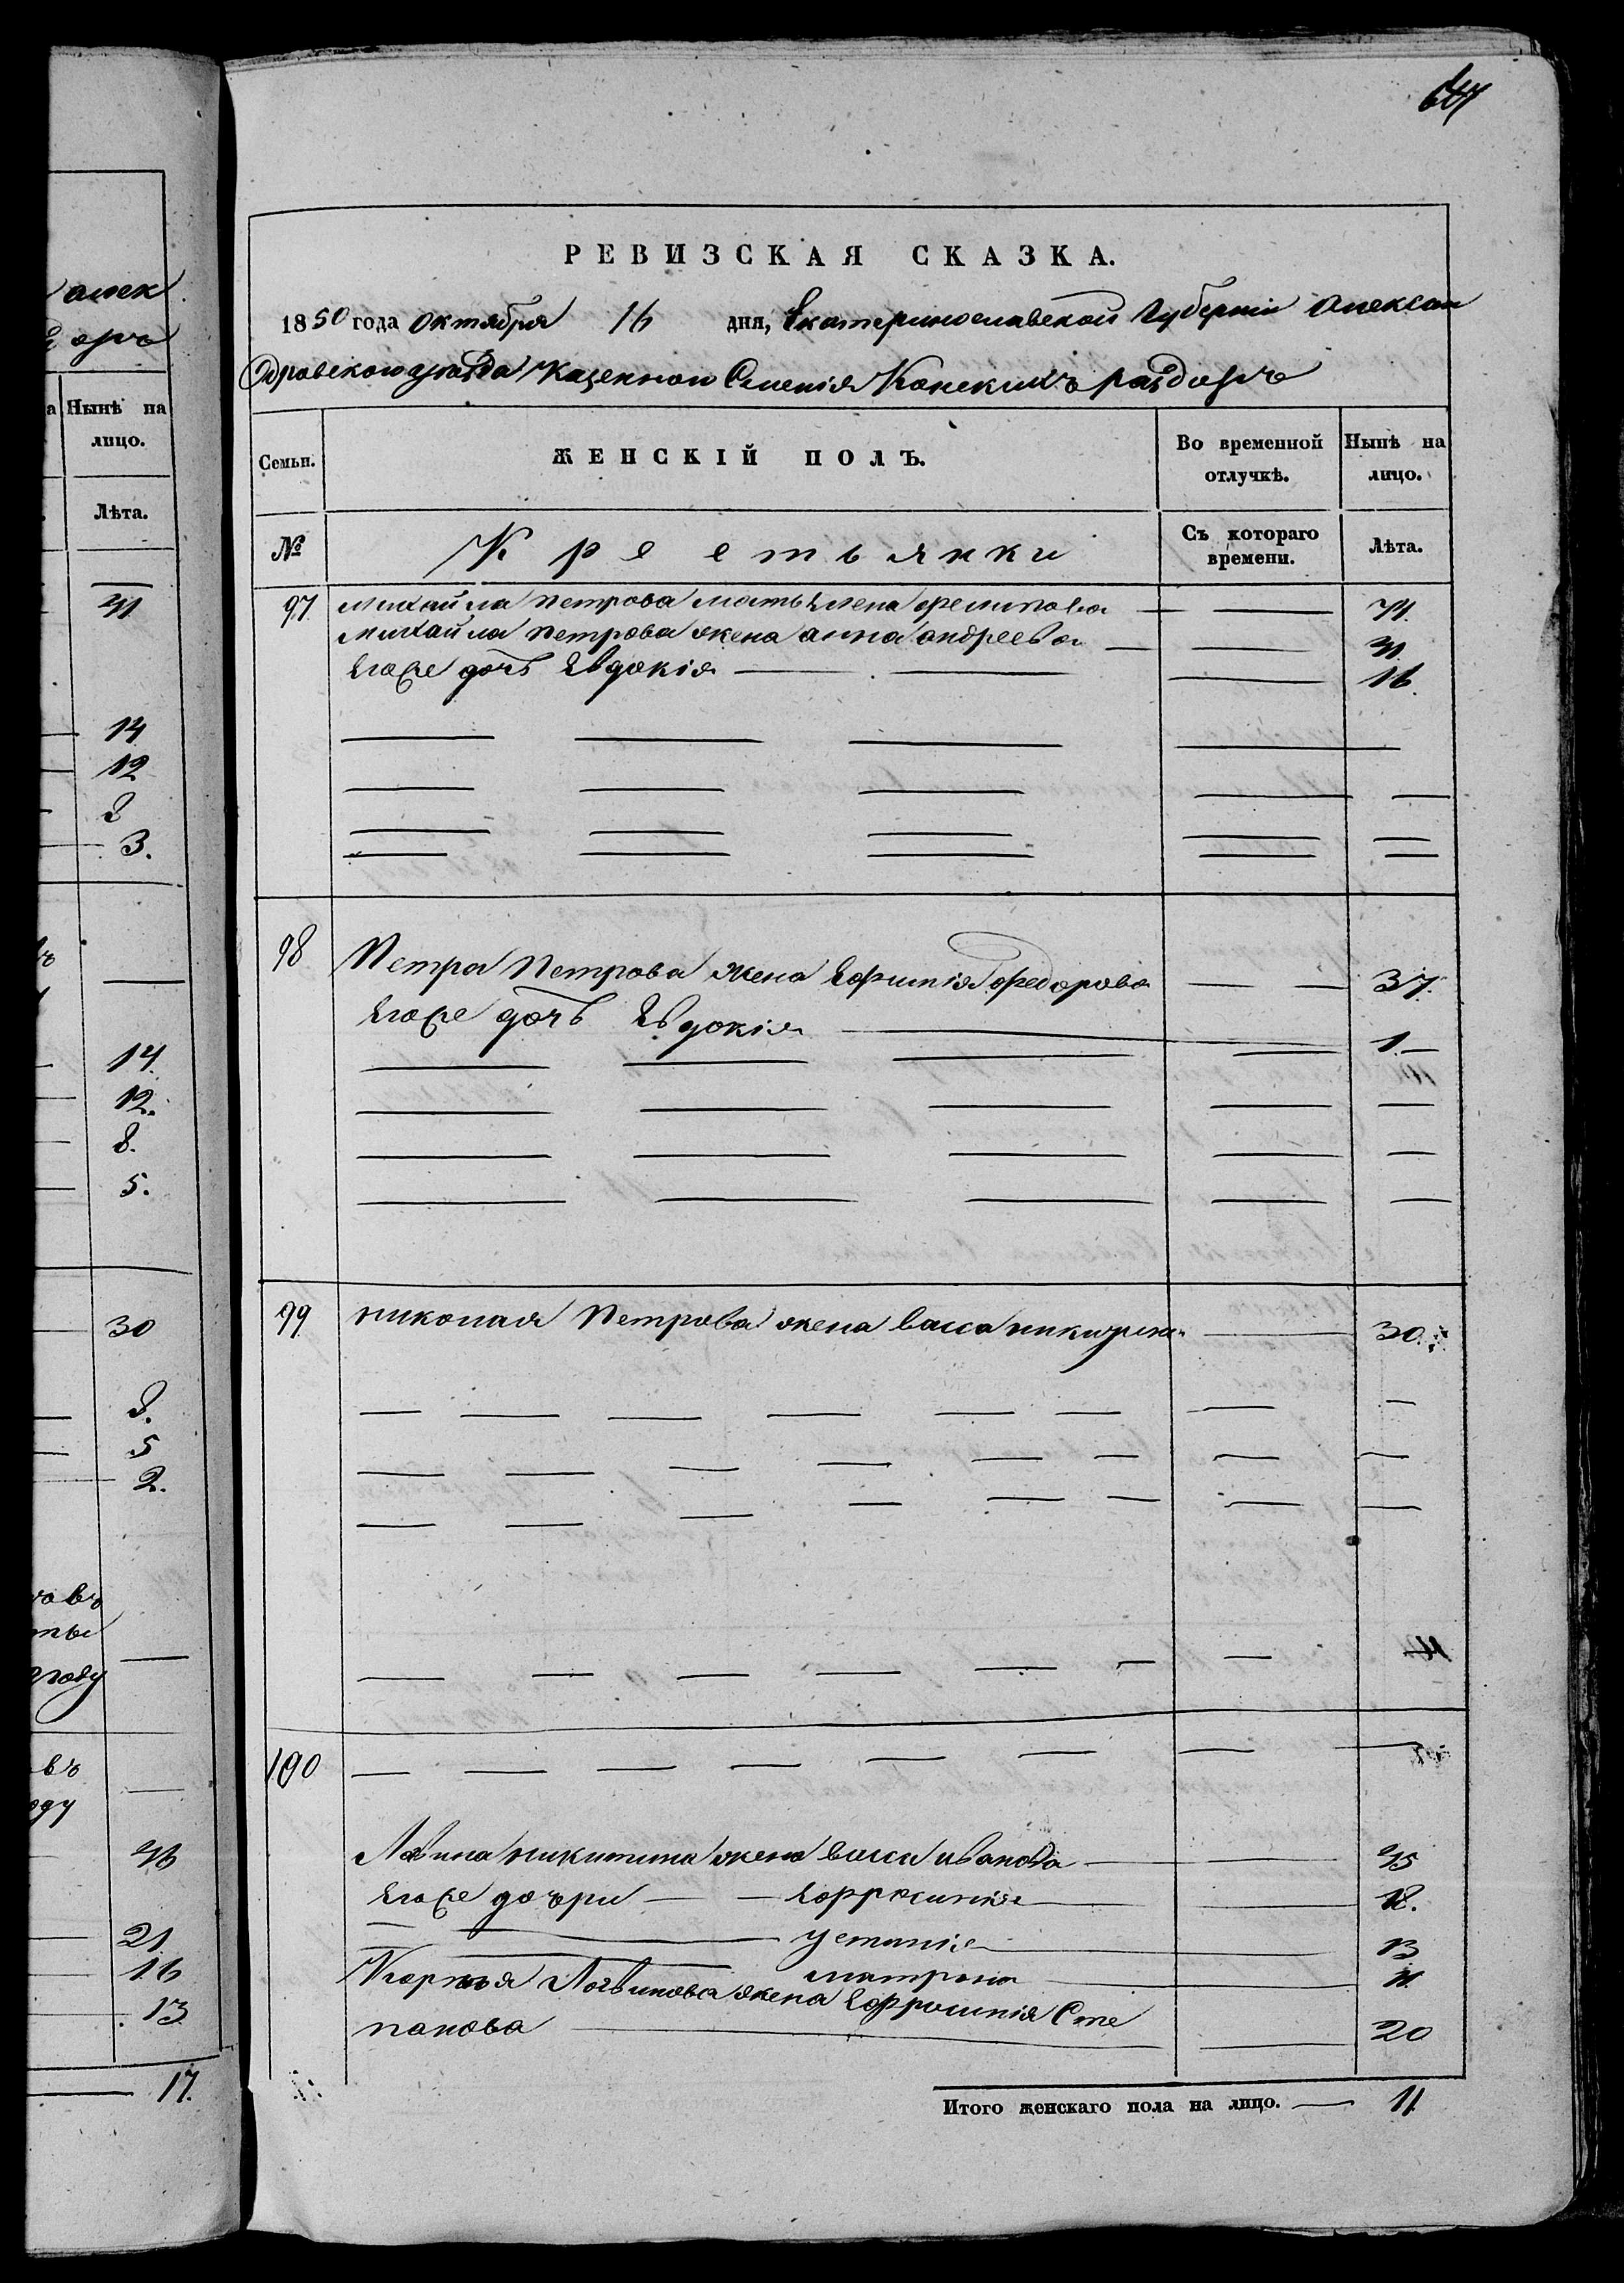 амск
Нынѣ на
лицо.
Лѣта.
14
12
8
3.
14.
12.
8.
5.
30
8.
5
2.
году
въ
оду
21
16
13
17.
РЕВИЗСКАЯ СКАЗКА.
1850 года октября 16 дня, Екатеринославской Губерніи Алексан
дровского уезда Казенной Слменія Конскихъ раздоръ
Семьи. ЖЕНСКІЙ ПОЛЪ. Во временной отлучкѣ. Нынѣ на лицо.
№ Крестьянки Съ котораго времени. Лѣта.
97 Михайла Петрова мать Елена Филипова
Михайла Петрова жена анна андреева
Егоже дочь Евдокія 16
98 Петра Петрова жена Ефимія Федорова 37.
Егоже дочь Евдокія 1.
99 николая Петрова жена васса 30.
100
никитина жена васса иванова 45
Егоже дочери Ефросинія 18.
устинія 13
матрона 11
жена Ефросинія Сте
панова 20
Итого женскаго пола на лицо. 11